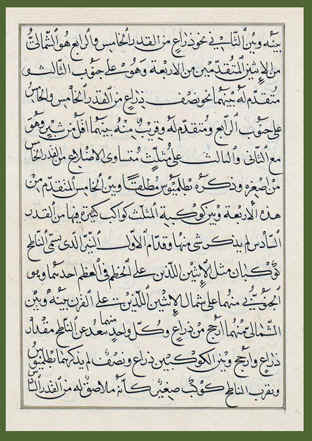 بينه وبين الثاني نحو ذراع من القدر الخامس والرابع هو الشمالي
من الاثنين المتقدمين من الاربعة وهو على جنوب الثالث
متقدم له بينهما نحو نصف ذراع من القدر الخامس والخامس
على جنوب الرابع ومتقدم له وقريب منه بينهما اقل من شبر وهو
مع الثاني والثالث على مثلث متساوى الاضلاع من القدر الخامس
من اصغره وذكره بطلميوس مطلقا وبين الخامس المتقدم من
هذه الاربعة وبين كوكبة المثلث كواكب كثيرة فيها من القدر
السادس لم يذكر شى منها وقدام الاول النير الذى سمى الناطح
كوكبان مثل الاثنين اللذين على الخطم فى العظم احدهما
الجنوبى منهما على شمال الاثنين اللذين على القرن بينه وبين
الشمالى منهما ارجح من ذراع وكل واحد منهما بعد عن الناطح مقدار
ذراع وارجح وبين الكوكبين ذراع ونصف لم يذكرهما بطلميوس
وبقرب الناطح كوكب صغير كانه ملاصق له من القدر